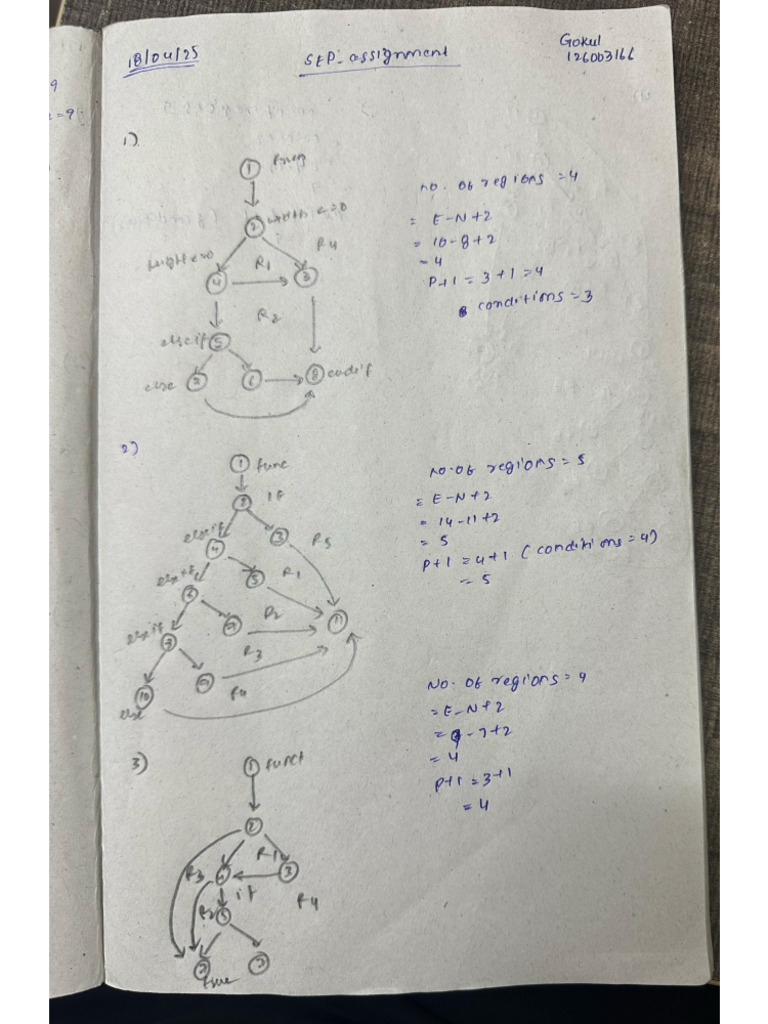 9
=9
18/04/25
SEP-assignment
Gokul
126003166
1)
1
2
<=0
R4
R1
4
3
R2
elseif 5
else
8 endif
no. of regions = 4
= E-N+2
= 10-8+2
= 4
P+1 = 3+1 = 4
conditions = 3
2)
1 func
if
elseif
4
3
R5
elseif
5
R1
R2
elseif
R3
10
R4
else
no. of regions = 5
= E-N+2
= 14-11+2
= 5
P+1 = 4+1 (conditions = 4)
= 5
3)
1 funct
2
R1
R3
3
if
R4
R2
No. of regions = 4
= E-N+2
= 9-7+2
= 4
P+1 = 3+1
= 4